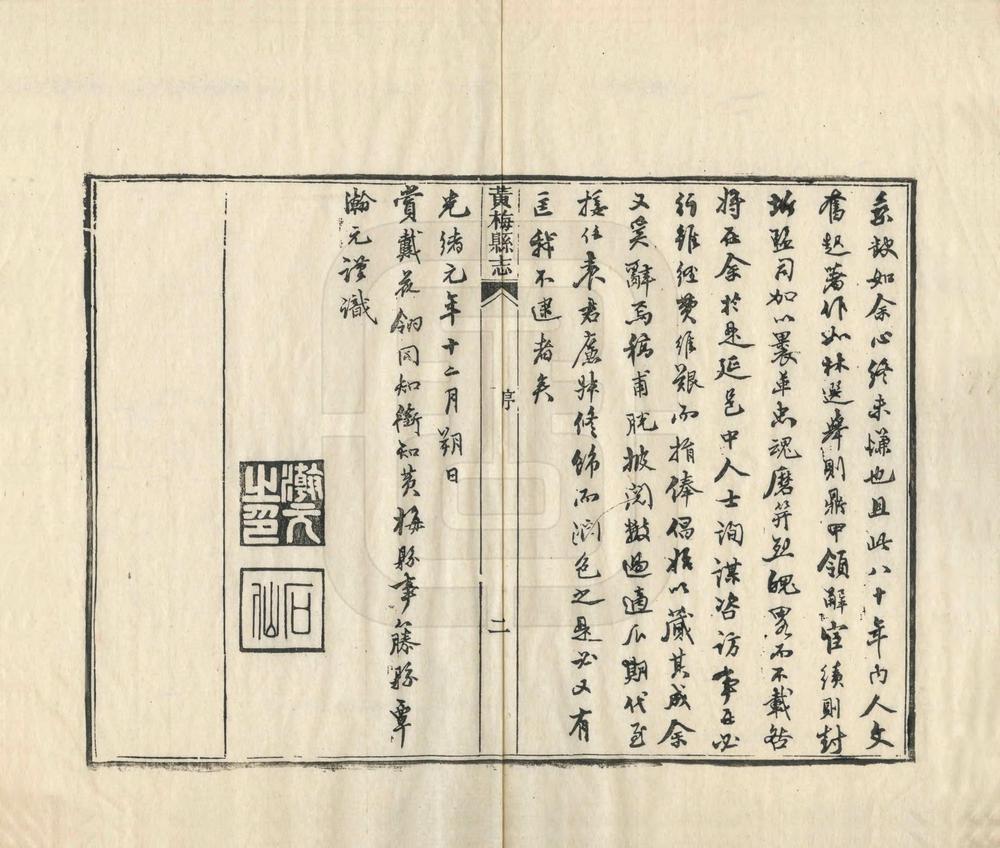 亲故如余心終未慊也且此八十年內人文
奮起著作如林選舉則鼎甲領解宦績則封
圻監司加以褁革忠魂磨笄烈魄畧而不載咎
將在余於是延邑中人士詢謀咨訪事在必
行雖經費維艱而捐俸倡始以蕆其成余
又奚辭焉稿甫脫披閱數過適瓜期代至
接任袁君䖍昇修飾而潤色之是必又有
匡我不逮者矣
光緒元年十二月朔日
賞戴花翎同知銜知黃梅縣事籐縣覃
瀚元謹識
黃梅縣志
序
二
瀚元之印
石仙